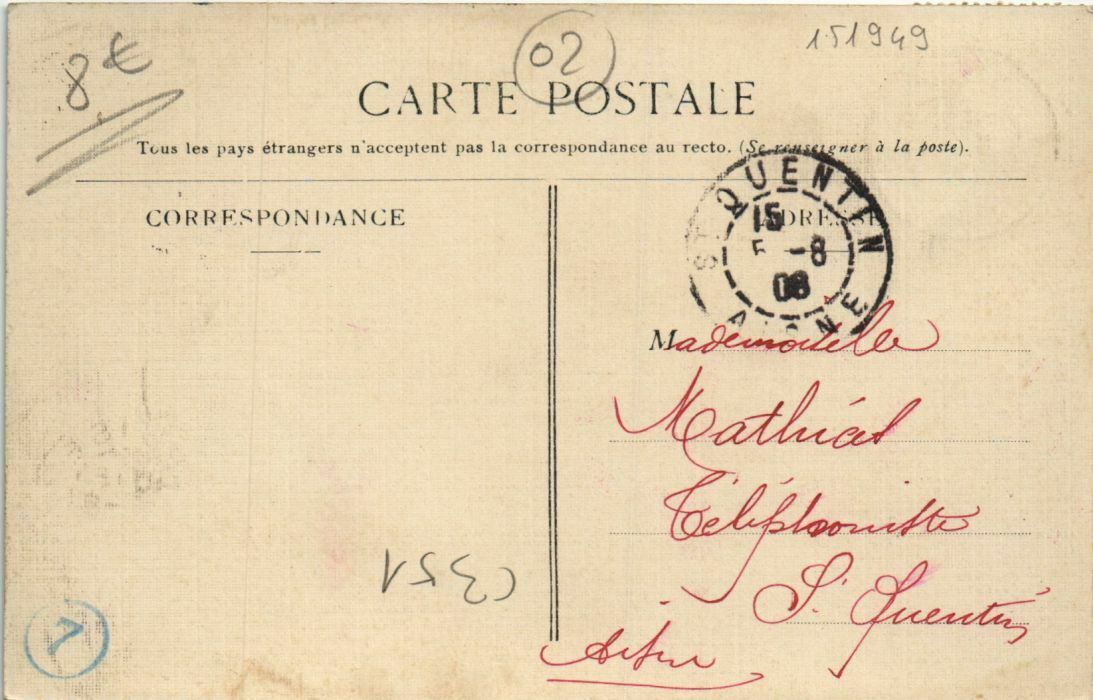 8€
02
151949
CARTE POSTALE
Tous les pays étrangers n'acceptent pas la correspondance au recto. (Se renseigner à la poste).
CORRESPONDANCE
ADRESSE
ST QUENTIN
15
5 -8
08
AISNE
Mademoiselle
Mathias
Téléphoniste
St Quentin
Aisne
C351
7